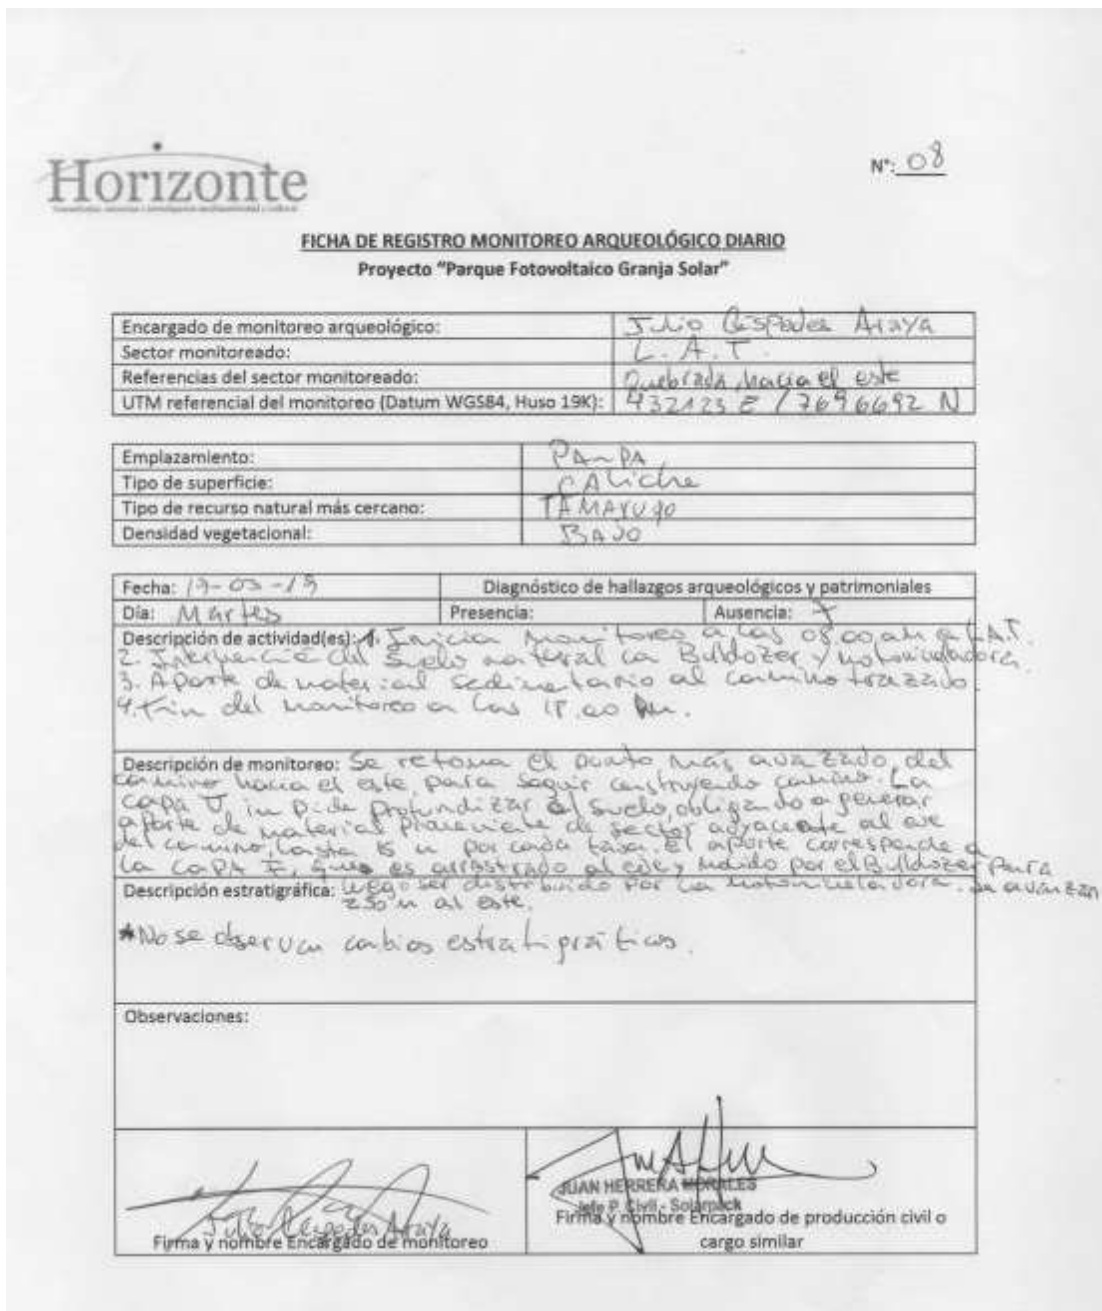 Horizonte
N°: 08
FICHA DE REGISTRO MONITOREO ARQUEOLÓGICO DIARIO
Proyecto "Parque Fotovoltaico Granja Solar"
Encargado de monitoreo arqueológico: Julio Céspedes Araya
Sector monitoreado: L.A.T.
Referencias del sector monitoreado: Quebrada, hacia el este
UTM referencial del monitoreo (Datum WGS84, Huso 19K): 432123 E / 7696692 N
Emplazamiento: PAmPA
Tipo de superficie: CALiche
Tipo de recurso natural más cercano: TAMARUGO
Densidad vegetacional: BAJO
Fecha: -03- Diagnóstico de hallazgos arqueológicos y patrimoniales
Día: Martes Presencia: Ausencia:
Descripción de actividad(es): 1. Inicia monitoreo a las 08.00 am L.A.T.
2. del suelo natural con Buldozer y motoniveladora.
3. Aporte de material sedimentario al camino trazado.
4. Fin del monitoreo a las 18.00
Descripción de monitoreo: Se retoma el punto más avanzado del
camino hacia el este, para seguir construyendo camino. La
capa impide profundizar el suelo, obligando a generar
aporte de material de sector adyacente al eje
del camino, hasta 15 m por cada El aporte corresponde a
la CAPA I, que es arrastrado al eje y por el Bulldozer para
Descripción estratigráfica: luego ser distribuido por la motoniveladora. Se avanzan
250 m al este.
*No se observan cambios estratigráficos.
Observaciones:
Julio Céspedes Araya
Firma y nombre Encargado de monitoreo
JUAN HERRERA MORALES
Jefe P. Civil - Solarpack
Firma y nombre Encargado de producción civil o
cargo similar